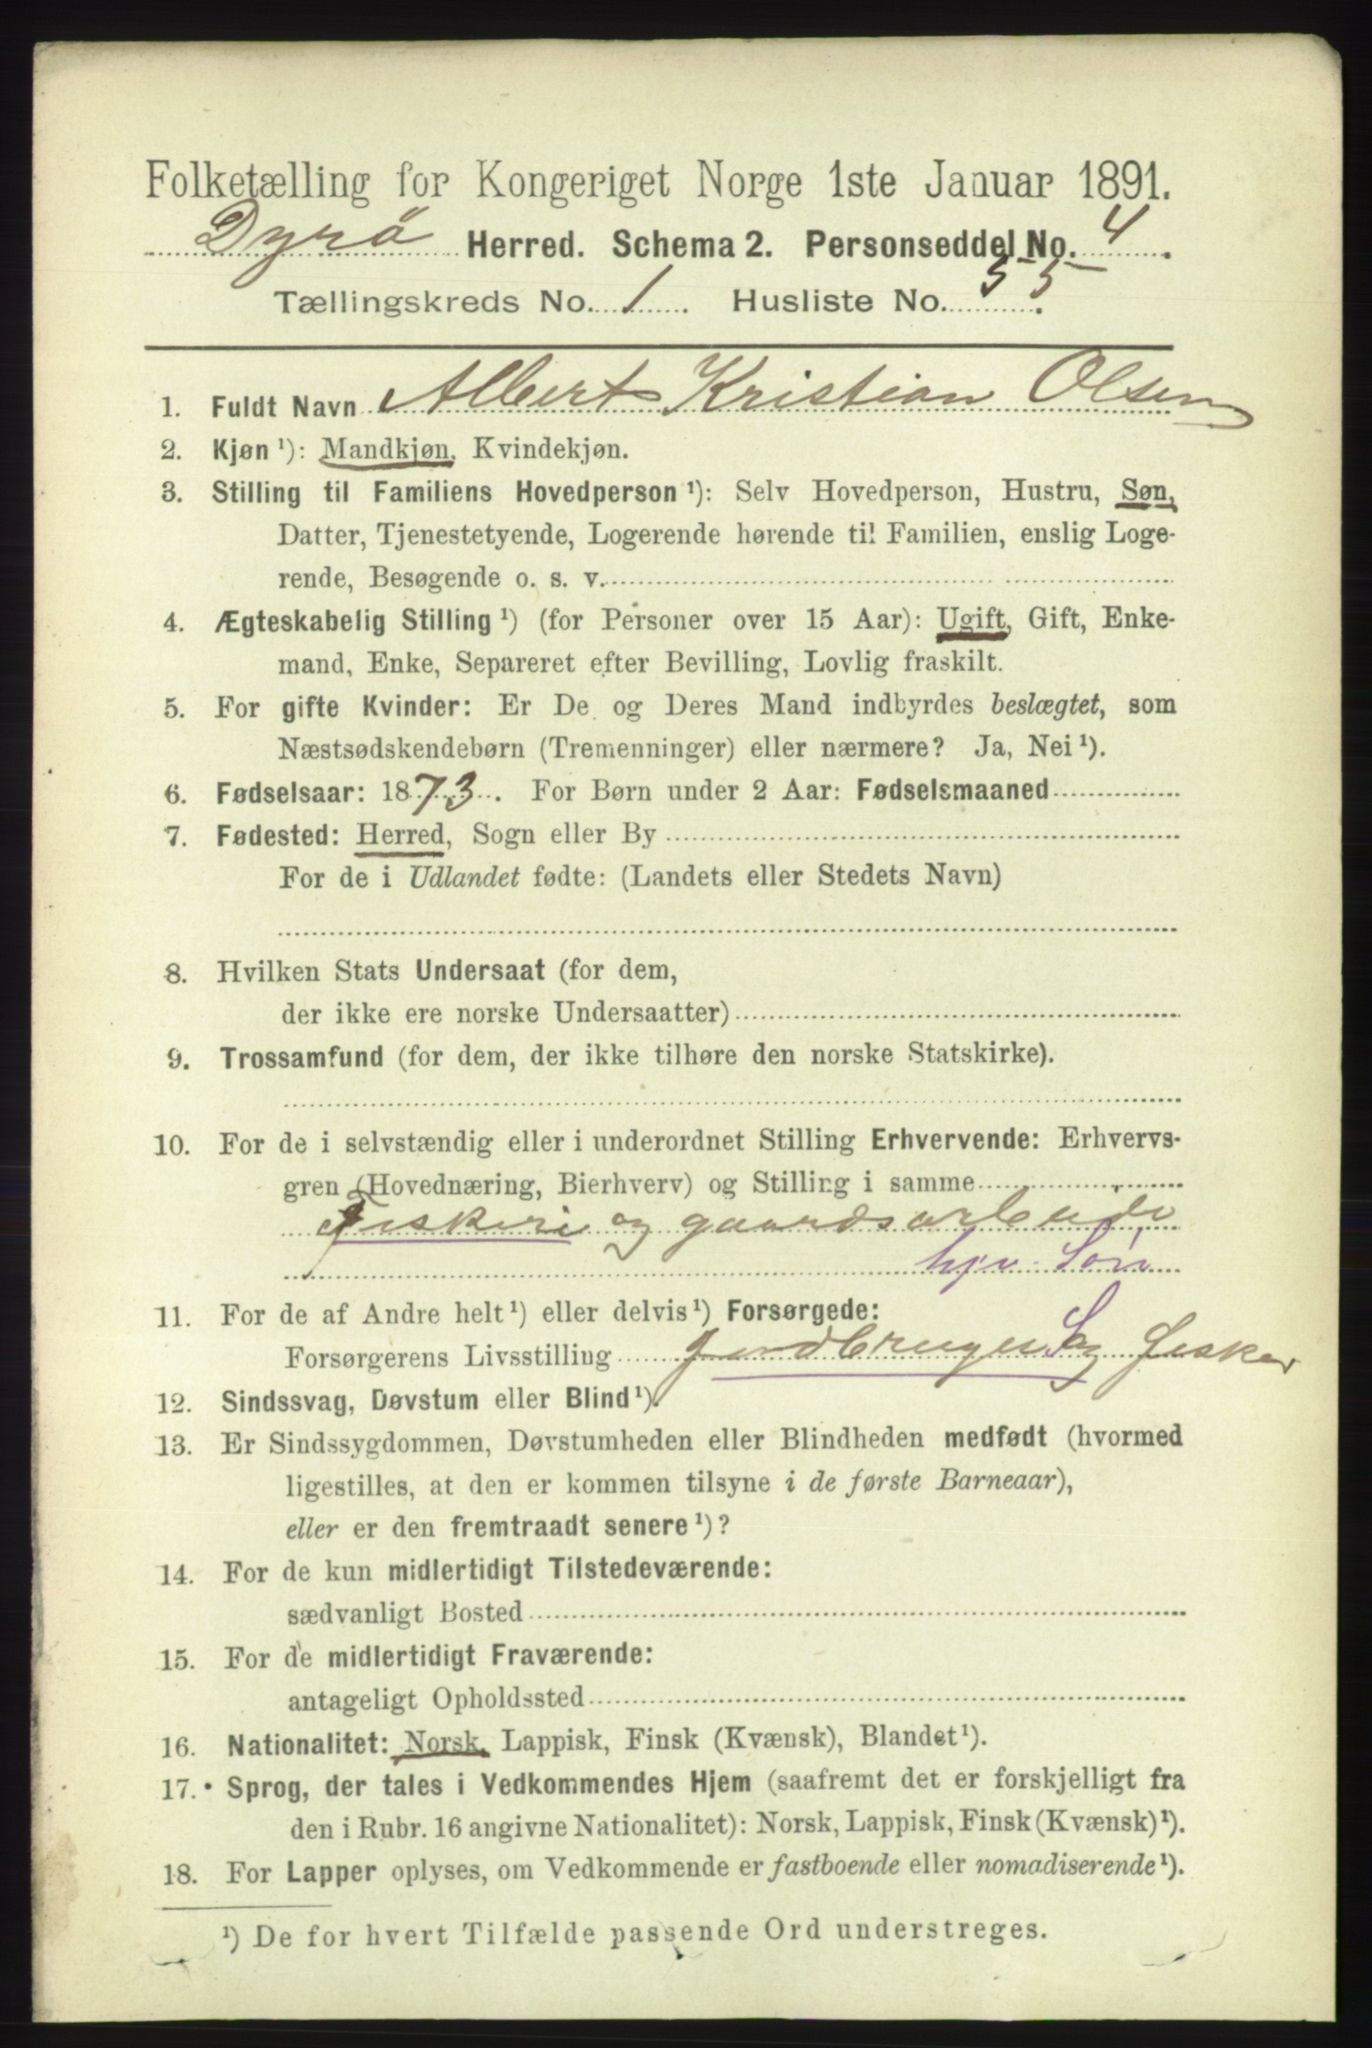 Folketælling for Kongeriget Norge 1ste Januar 1891.
Dyrö Herred. Schema 2. Personseddel No. 4.
Tællingskreds No. 1. Husliste No. 55.
1. Fuldt Navn Albert Kristian Olsen
2. Kjøn ¹): Mandkjøn, Kvindekjøn.
3. Stilling til Familiens Hovedperson ¹): Selv Hovedperson, Hustru, Søn,
Datter, Tjenestetyende, Logerende hørende til Familien, enslig Loge-
rende, Besøgende o. s. v.
4. Ægteskabelig Stilling ¹) (for Personer over 15 Aar): Ugift, Gift, Enke-
mand, Enke, Separeret efter Bevilling, Lovlig fraskilt.
5. For gifte Kvinder: Er De og Deres Mand indbyrdes beslægtet, som
Næstsødskendebørn (Tremenninger) eller nærmere? Ja, Nei ¹).
6. Fødselsaar: 1873. For Børn under 2 Aar: Fødselsmaaned
7. Fødested: Herred, Sogn eller By
For de i Udlandet fødte: (Landets eller Stedets Navn)
8. Hvilken Stats Undersaat (for dem,
der ikke ere norske Undersaatter)
9. Trossamfund (for dem, der ikke tilhøre den norske Statskirke).
10. For de i selvstændig eller i underordnet Stilling Erhvervende: Erhvervs-
gren (Hovednæring, Bierhverv) og Stilling i samme
Fiskeri og gaardsarbeide
hjv. Søn
11. For de af Andre helt ¹) eller delvis ¹) Forsørgede:
Forsørgerens Livsstilling Jordbruger og fisker
12. Sindssvag, Døvstum eller Blind ¹).
13. Er Sindssygdommen, Døvstumheden eller Blindheden medfødt (hvormed
ligestilles, at den er kommen tilsyne i de første Barneaar),
eller er den fremtraadt senere ¹)?
14. For de kun midlertidigt Tilstedeværende:
sædvanligt Bosted
15. For de midlertidigt Fraværende:
antageligt Opholdssted
16. Nationalitet: Norsk, Lappisk, Finsk (Kvænsk), Blandet ¹).
17. Sprog, der tales i Vedkommendes Hjem (saafremt det er forskjelligt fra
den i Rubr. 16 angivne Nationalitet): Norsk, Lappisk, Finsk (Kvænsk) ¹).
18. For Lapper oplyses, om Vedkommende er fastboende eller nomadiserende ¹).
¹) De for hvert Tilfælde passende Ord understreges.